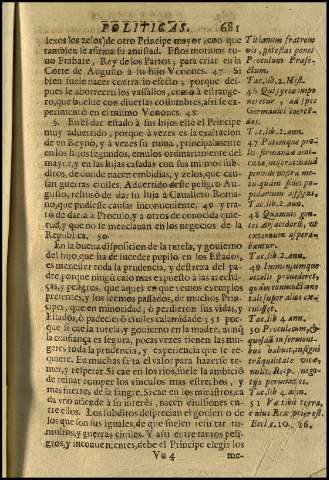 POLITICAS. 681
lexos los zelos) de otro Principe mayor, con que
tambien se afirma su amistad. Estos motivos tuvo
Frahate, Rey de los Partos, para criar en la
Corte de Augusto a su hijo Vonones. 47 Si
bien suele nacer contrario efecto; porque despues
le aborrecen los vassallos, como à estrangero,
que buelve con diversas costumbres, assi se experimentò
en el mismo Vonones. 48
§. En el dar estado à sus hijos este el Principe
muy advertido, porque à vezes es la exaltacion
de vn Reyno, y à vezes su ruina, principalmente
en los hijos segundos, emulos ordinariamente del
mayor, y en las hijas casadas con sus mismos subditos,
de donde nacen embidias, y zelos, que causan
guerras civiles. Advertido deste peligro Augusto,
rehusò de dar su hija à Cavallero Romano,
que pudiesse causar inconveniente, 49 y tratò
de darla à Proculo, y à otros de conocida quietud,
y que no se mezclavan en los negocios de la
Republica. 50
En la buena disposicion de la tutela, y govierno
del hijo, que ha de suceder pupilo en los Estados,
es menester toda la prudencia, y destreza del padre,
porque ningun caso mas expuesto à las assechanças,
y peligros, que aquel en que vemos exemplos
presentes, y los leemos passados, de muchos Principes,
que en minoridad, ò perdieron sus vidas, y
Estados, ò padecieron civiles calamidades; 51 porque
si cae la tutela, y govierno en la madre, aunque
la confiança es segura, pocas vezes tienen las mugeres
toda la prudencia, y experiencia que se requiere.
En muchas falta el valor para hazerse temer,
y respetar. Si cae en los tios, suele la ambicion
de reinar romper los vinculos mas estrechos, y
mas fuertes de la sangre. Si cae en los ministros, cada
vno atiende à su interès, nacen divisiones entre
ellos. Los subditos desprecian el govierno de
los que son sus iguales, de que suelen resultar tumultos,
y guerras civiles. Y assi entre tantos peligros,
y inconvenientes, debe el Principe elegir los
Vu 4 me-
Titianum fratrem
vis, potestas penes
Proculum Præfectum.
Tac. lib. 2. Hist.
Tac. lib. 2. ann.
47 Partemque prolis
firmanda amicitia,
miserat haud
perinde nostri metu,
quam fidei popularium
diffisus.
Tac. lib. 2. ann.
48 Quamvis gentis
Arsacidarum, vt
externum aspernabantur.
Tac. lib. 2. ann.
49
Tac. lib. 4. ann.
50 Proculeium, &
quosdam in sermonibus
habuit, insigni
tranquilitate vitæ,
nullis Reip. negotijs
permixtos.
Tac. lib. 4. ann.
51 Væ tibi terra,
cuius Rex puer est.
Eccl. c. 10. 16.